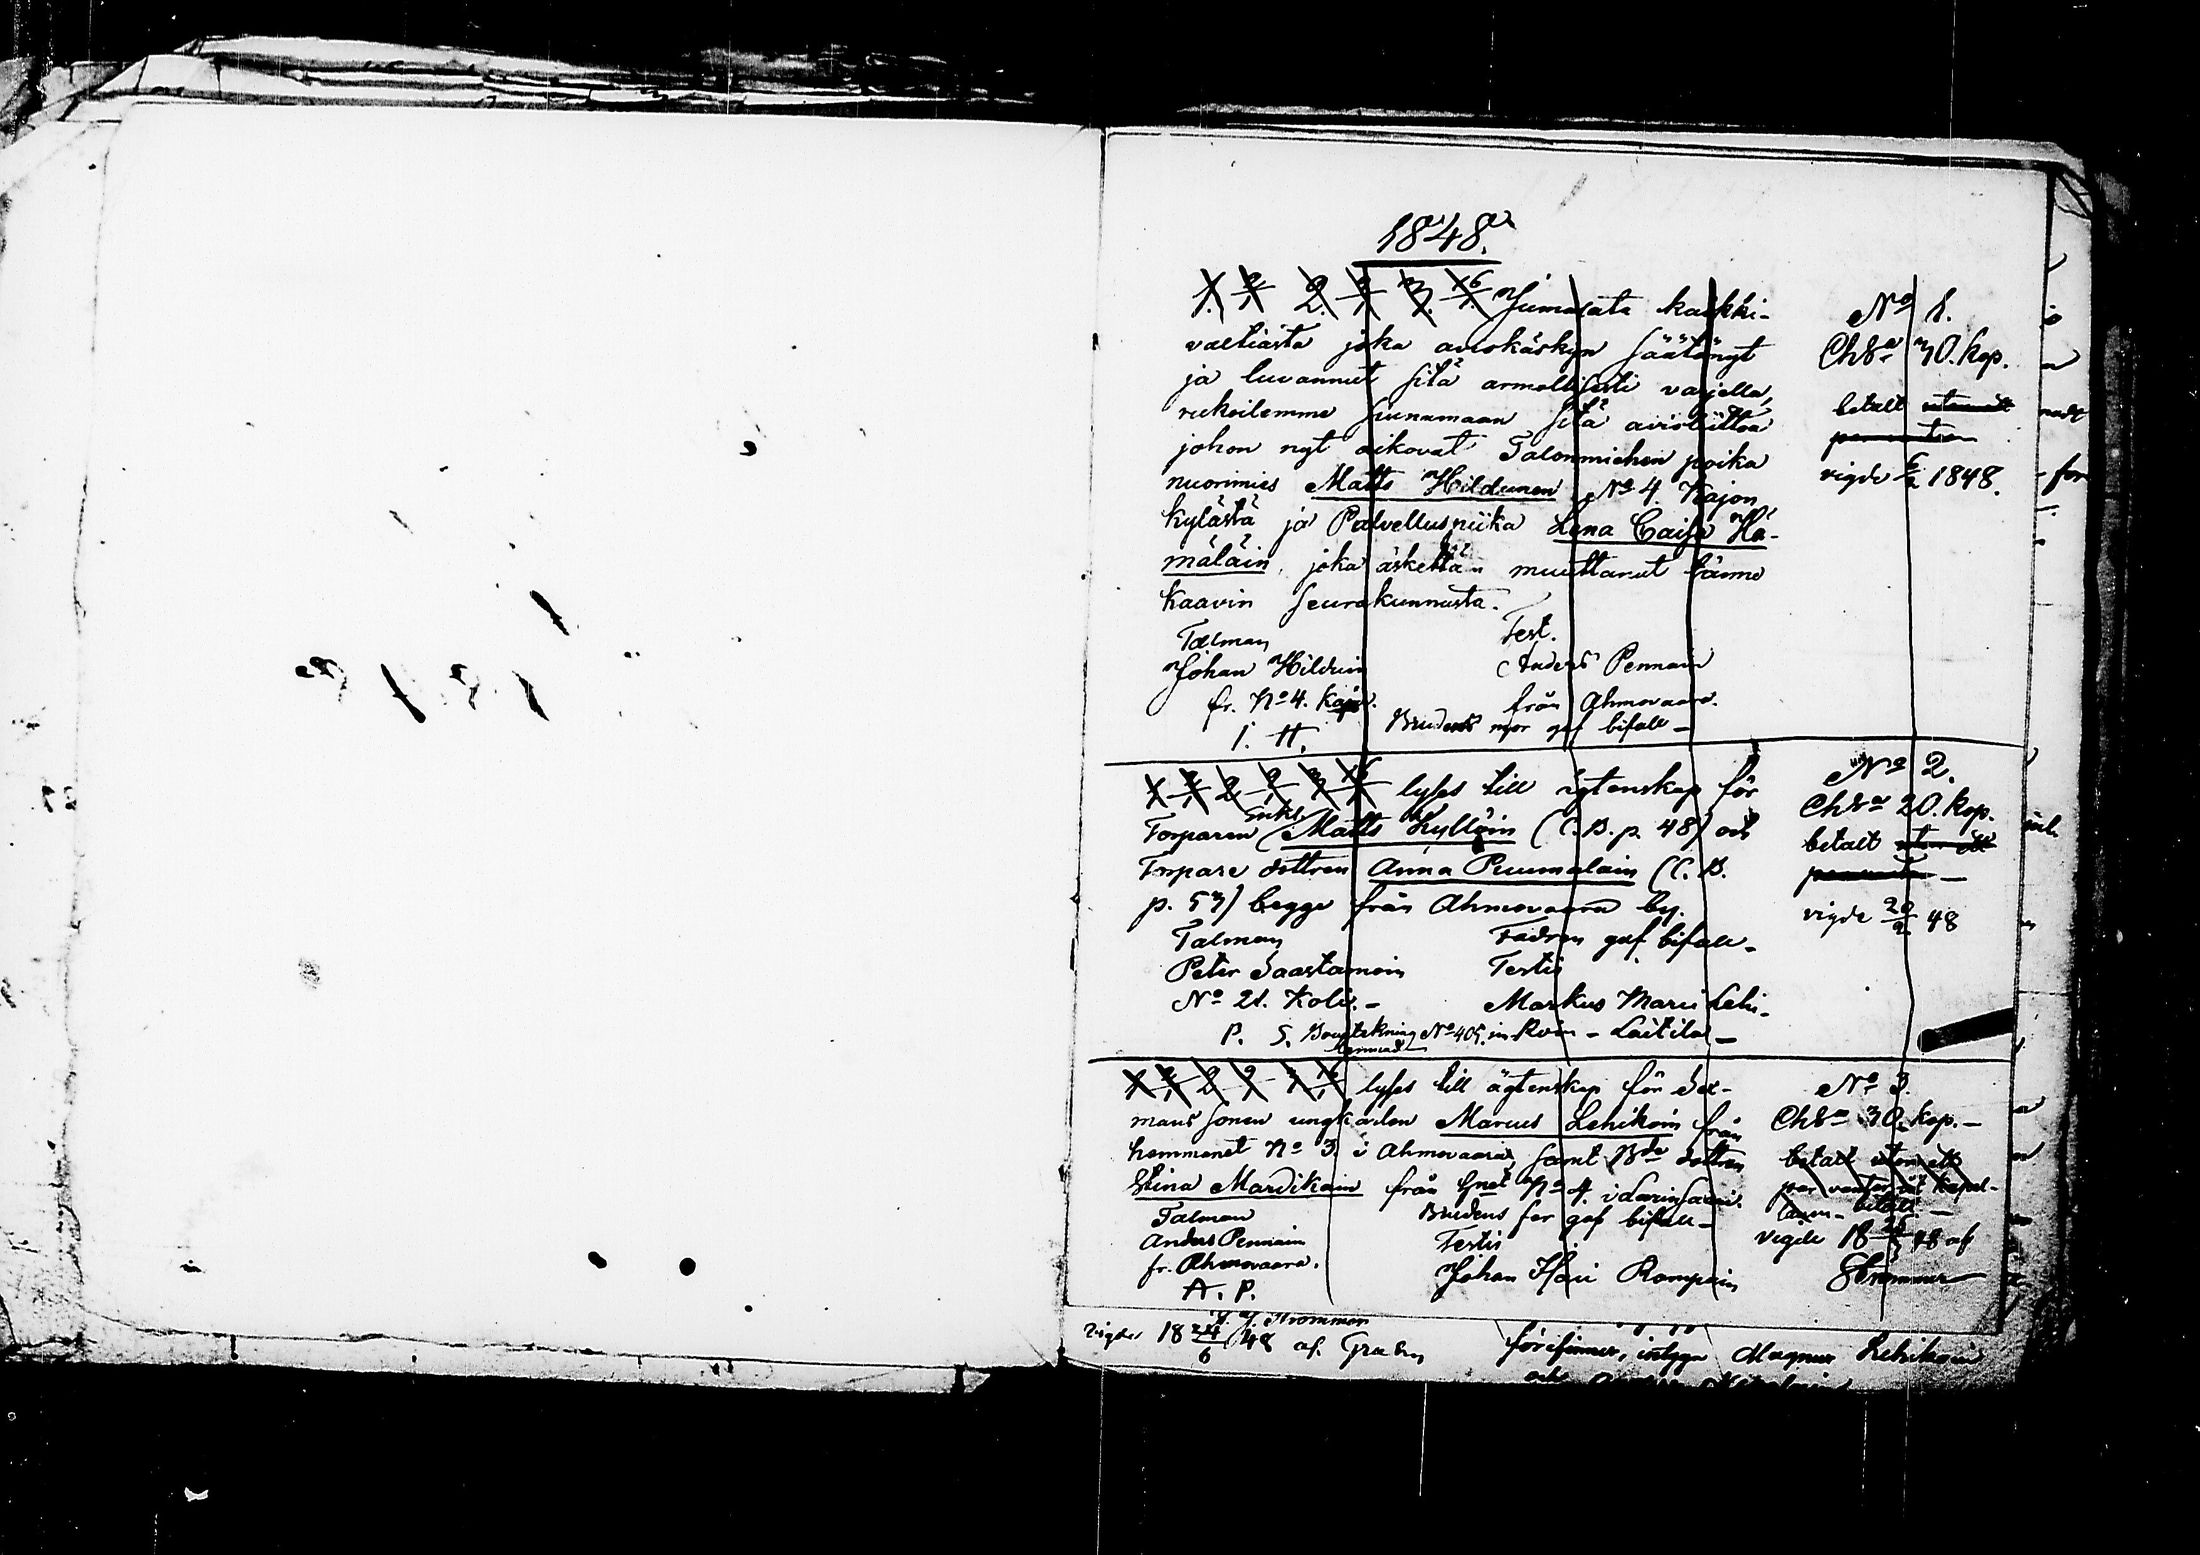 1848.
1. 2/1 2. 9/1 3. 16/1 Jumalata kaikki-
valtiasta joka aviokäskyn säätänyt
ja luvannut sitä armollisesti varjella,
rukoilemme siunamaan sitä avioliittoa
johon nyt aikovat Talonmiehen poika
nuorimies Matts Hildunen No 4. Kajon
kylästä ja Palvelluspiika Lena Caisa Hä-
mäläin, joka äskettäin muuttanut tänne
Kaavin seurakunnasta.
Talman
Johan Hilduin
fr. No 4.
I. H.
Test.
Anders Pennain
från Ahmovaara.
Brudens mor gef bifall -
No 1.
Chsa 30. kop.
betalt
vigde 1848.
1 2/1 2 9/1 3 16/1 lyses till ägtenskap för
Torparen Enkl. Matts Kyllöin (C.B. p. 48) och
Torpare dottren Anna Puumalain (C.B.
p. 53) begge från Ahmovaara by.
Talman
Peter Saastamoin
No 21. Koli. -
P. S.
Fadren gaf bifall -
Testis
Markus Mari Lehi-
koin - Laitila -
No 405.
No 2.
Chsa 20. kop.
betalt
vigde 20/2 48
lyses till ägtenskap för Sex-
mans sonen ungkarlen Marcus Lehikoin från
hemmanet No 3. i Ahmovaara, samt Bde dottren
Stina Mardikain från No 4. i Larinsaari.
Talman
Anders Pennain
fr. Ahmovaara.
A. P.
Brudens far gaf bifall -
Testis
Johan Rompain
No 3.
Chsa 30. kop. -
betalt utom ett
vigde 18 48 af
Strömmer
vigde 18 24/6 48 af
intyga Magnus Lehikoin